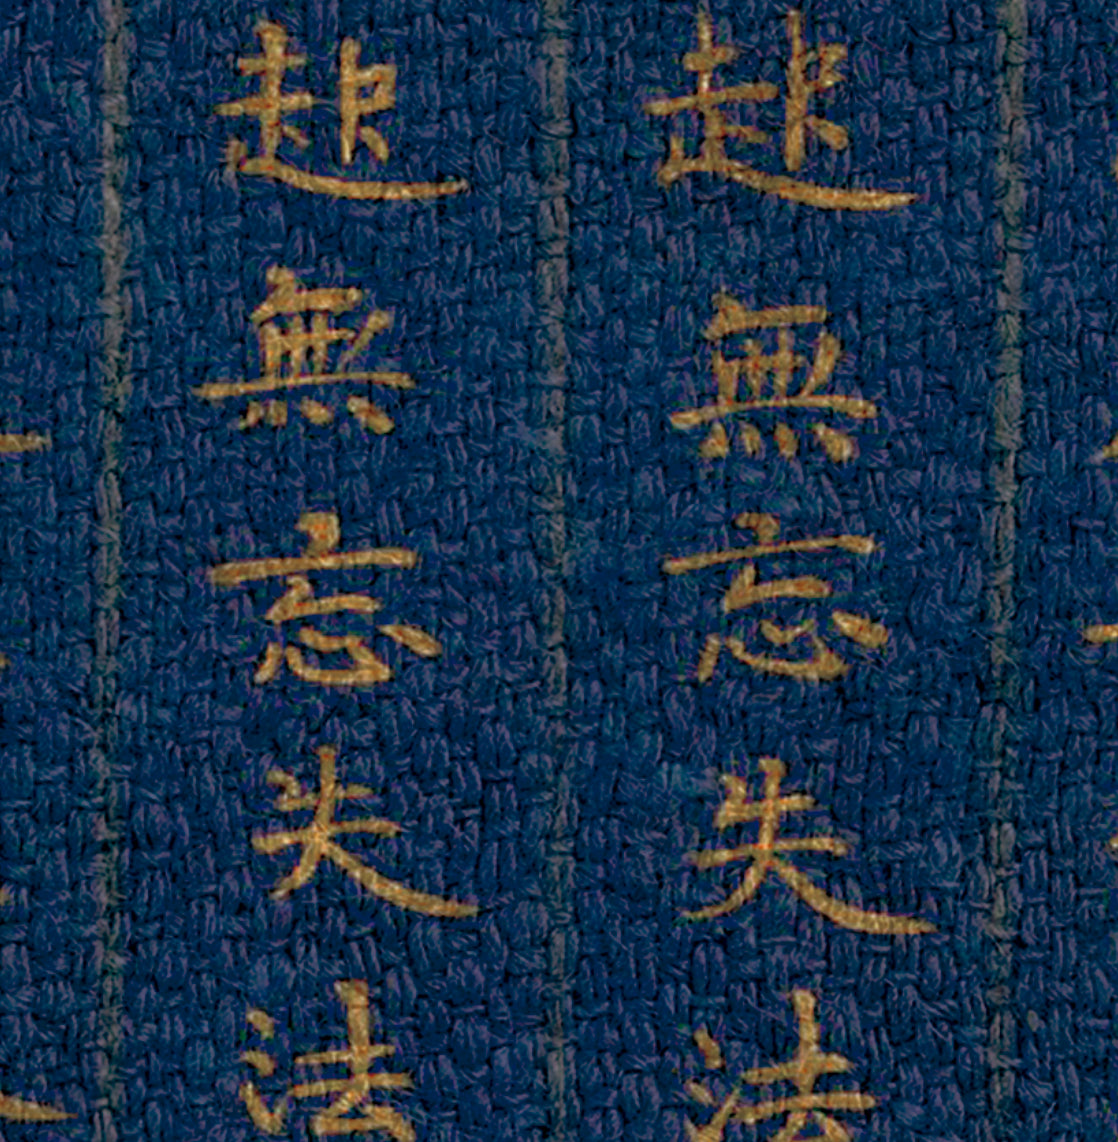 無忘失法
無忘失法